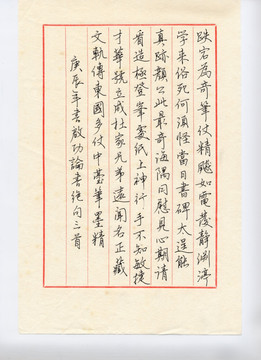 跌宕為奇筆仗精飇如電發靜淵渟
学来俗死何須怪當日書碑太逞能
真跡顏公此最奇海隅同慰見心期请
看造極登峯處紙上神行手不知敏捷
才華號立成杜家兄弟遠聞名正藏
文軌傳東國多仗中臺筆墨精
庚辰年書啟功論書絕句三首